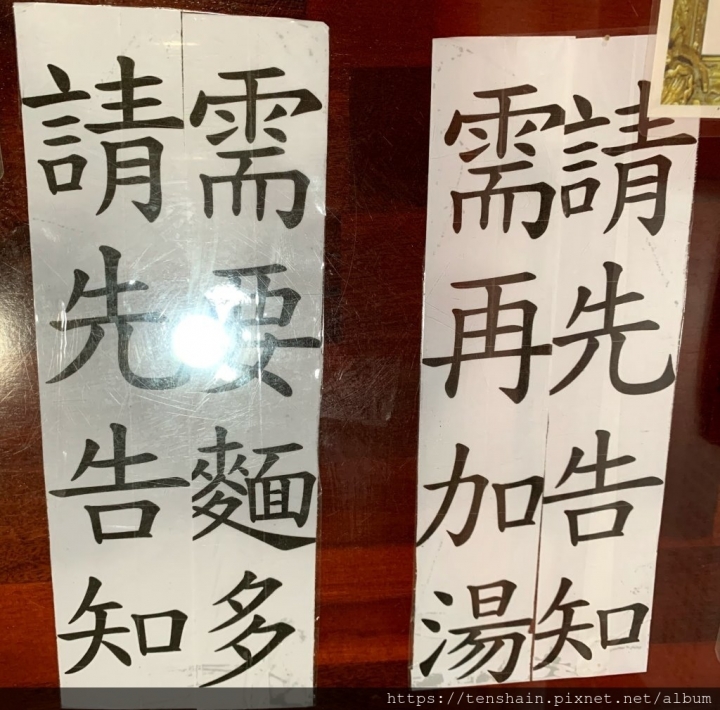 需要麵多
請先告知
請先告知
需再加湯
https://tenshain.pixnet.net/album